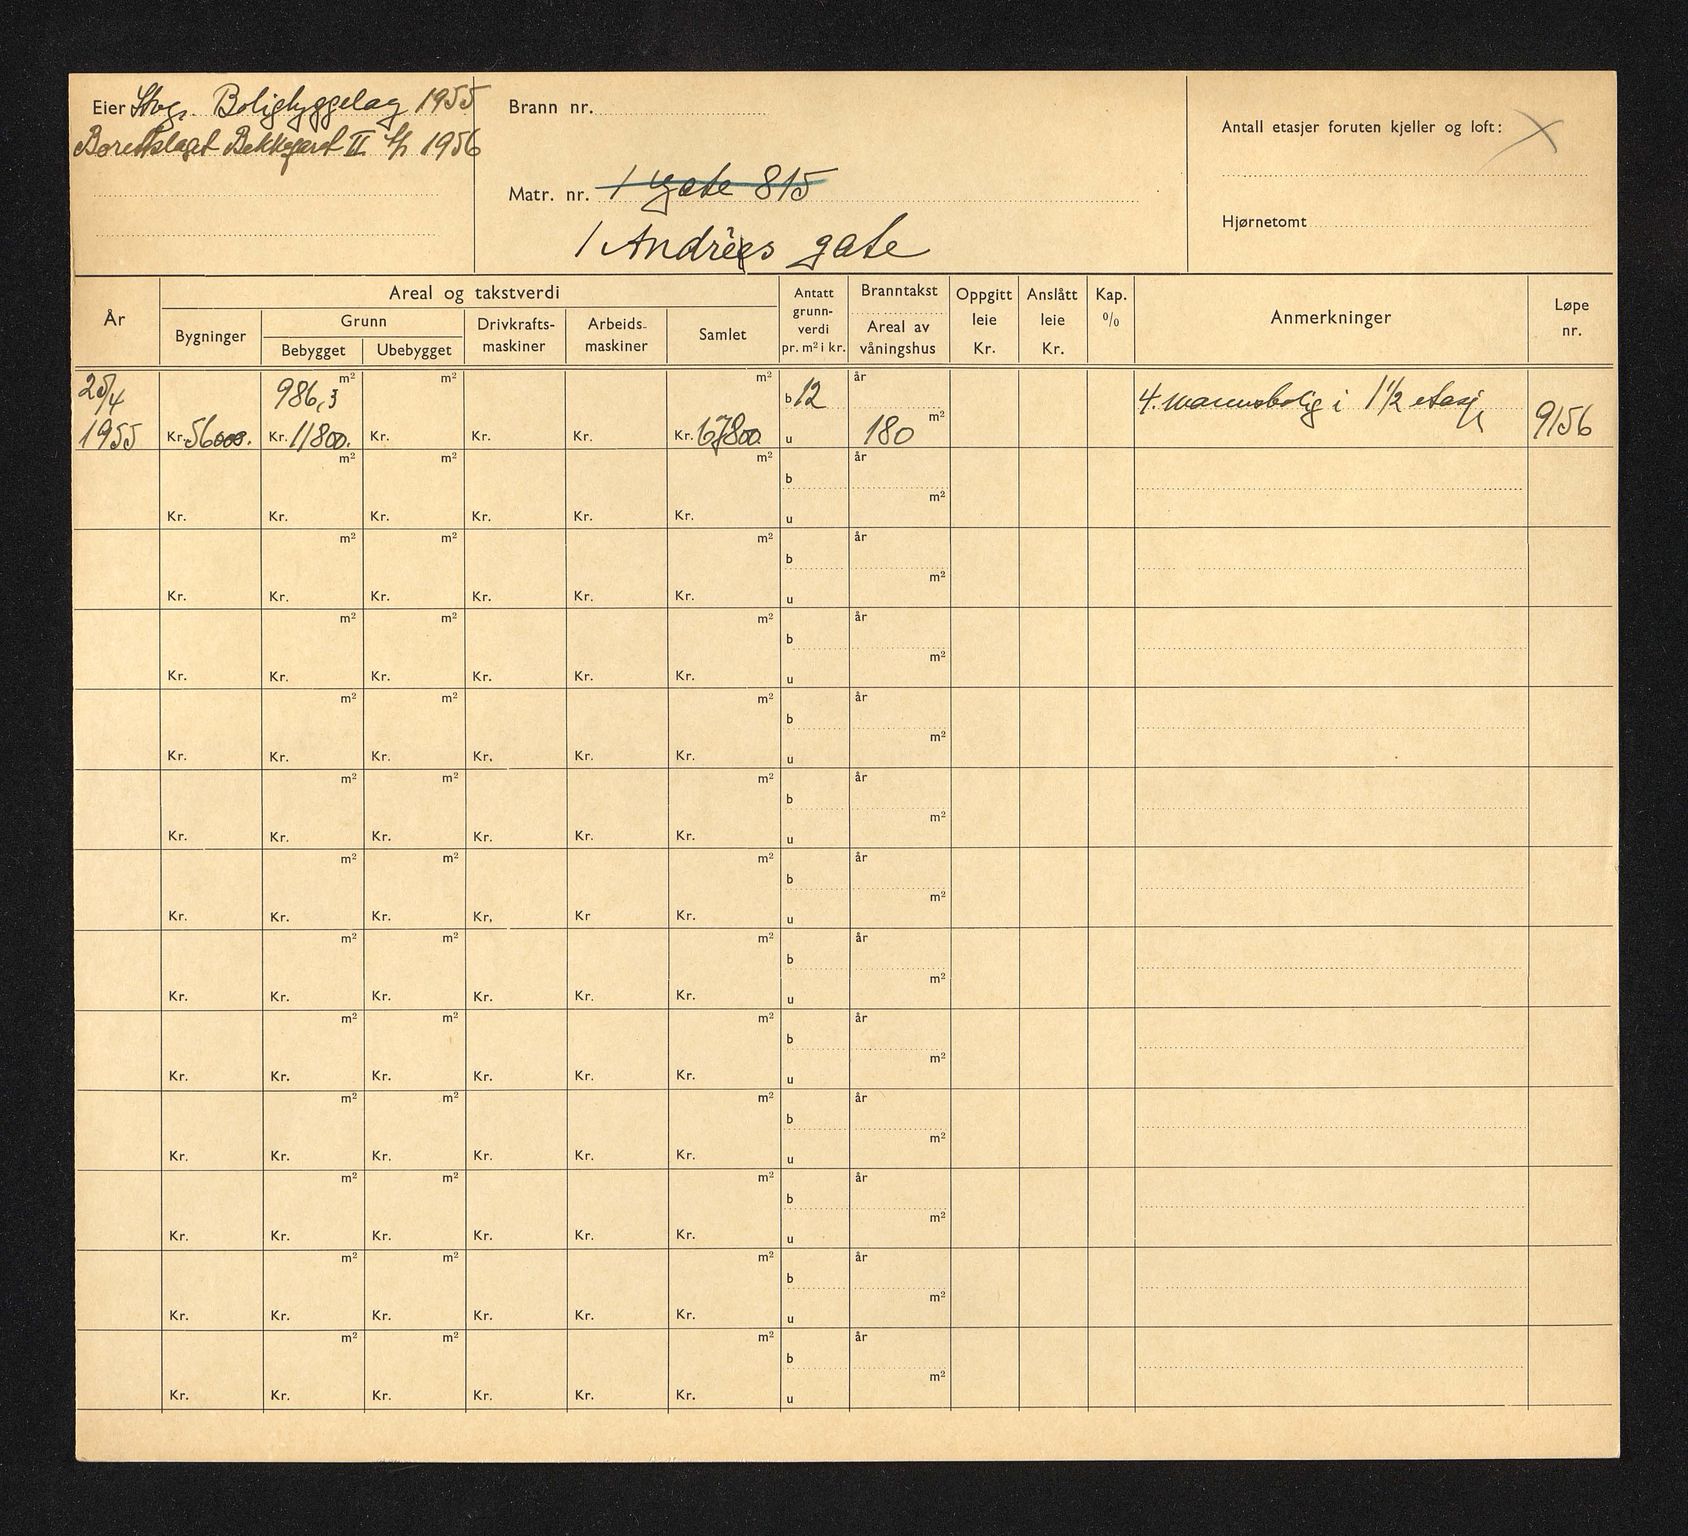 Eier Stvgr. Boligbyggelag 1955
Borettslaget Bekkefaret II A/L 1956
Brann nr.
Matr. nr. 1 gate 815
1 Andrées gate
Antall etasjer foruten kjeller og loft: X
Hjørnetomt
År
Areal og takstverdi
Bygninger
Grunn
Bebygget Ubebygget
Drivkrafts-
maskiner
Arbeids-
maskiner
Samlet
Antatt
grunn-
verdi
pr. m² i kr.
Branntakst
Areal av
våningshus
Oppgitt
leie
Kr.
Anslått
leie
Kr.
Kap.
%
Anmerkninger
Løpe
nr.
25/4 986,3 m² m² m² b 12 år 4.mannsbolig i 1½ etasje
1955 Kr. 56000. Kr. 11800. Kr. Kr. Kr. Kr. 67800. u 180 m² 9156
m² m² m² b år
Kr. Kr. Kr. Kr. Kr. Kr. u m²
m² m² m² b år
Kr. Kr. Kr. Kr. Kr. Kr. u m²
m² m² m² b år
Kr. Kr. Kr. Kr. Kr. Kr. u m²
m² m² m² b år
Kr. Kr. Kr. Kr. Kr. Kr. u m²
m² m² m² b år
Kr. Kr. Kr. Kr. Kr. Kr. u m²
m² m² m² b år
Kr. Kr. Kr. Kr. Kr Kr. u m²
m² m² m² b år
Kr. Kr. Kr. Kr. Kr. Kr. u m²
m² m² m² b år
Kr. Kr. Kr. Kr. Kr. Kr. u m²
m² m² m² b år
Kr. Kr. Kr. Kr. Kr. Kr. u m²
m² m² m² b år
Kr. Kr. Kr. Kr. Kr. Kr. u m²
m² m² m² b år
Kr. Kr. Kr. Kr. Kr. Kr. u m²
m² m² m² b år
Kr. Kr. Kr. Kr. Kr. Kr. u m²